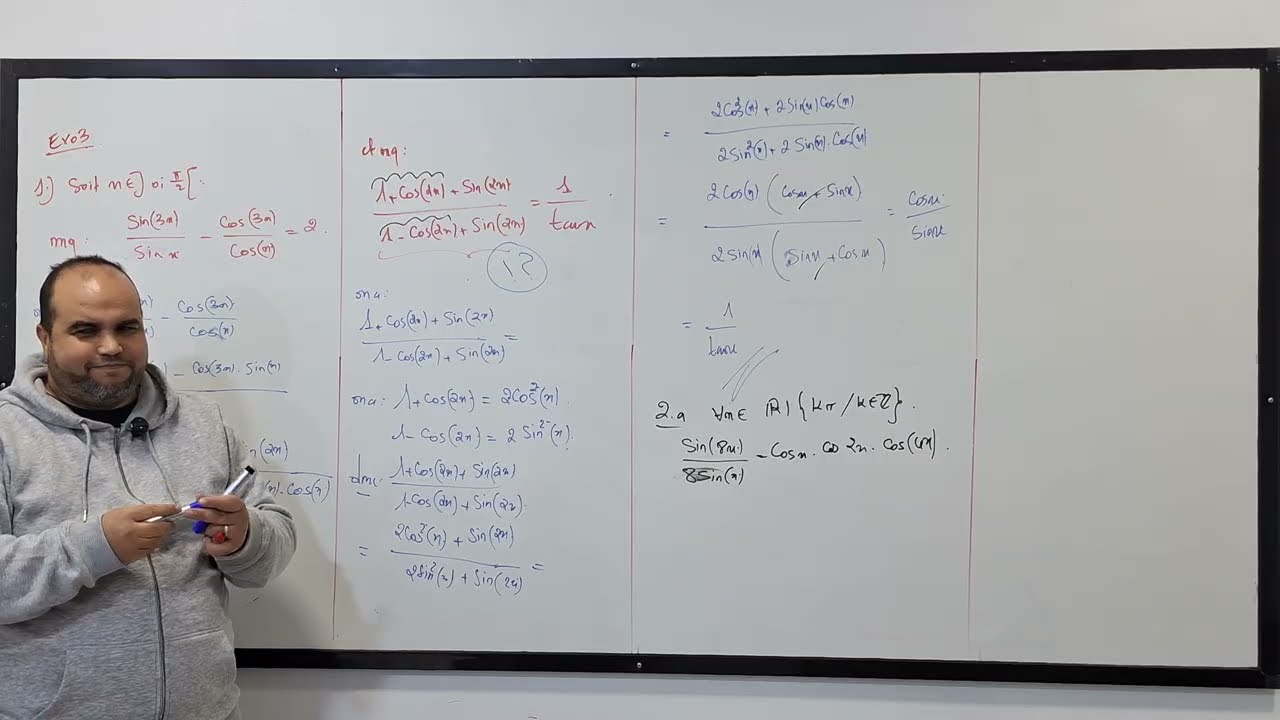 Exo3
1.) Soit x ∈ ] 0; π/2 [.
mq: Sin(3x)/Sin x - Cos(3x)/Cos(x) = 2.
- Cos(3x)/Cos(x)
- Cos(3x) . Sin(x)
(2x)
(x) . Cos(x)
et mq:
(1 + Cos(2x) + Sin(2x))/(1 - Cos(2x) + Sin(2x)) = 1/tanx
(1?)
on a:
(1 + Cos(2x) + Sin(2x))/(1 - Cos(2x) + Sin(2x)) =
on a: 1 + Cos(2x) = 2Cos²(x).
1 - Cos(2x) = 2 Sin²(x).
donc: (1 + Cos(2x) + Sin(2x))/(1 - Cos(2x) + Sin(2x))
= (2Cos²(x) + Sin(2x))/(2Sin²(x) + Sin(2x)) =
= (2Cos²(x) + 2Sin(x)Cos(x))/(2Sin²(x) + 2Sin(x).Cos(x))
= (2Cos(x) (Cosx + Sinx))/(2Sin(x) (Sinx + Cosx)) = Cosx/Sinx
= 1/tanx
2.a ∀x ∈ ℝ \ {kπ / k ∈ ℤ}.
Sin(8x)/8Sin(x) = Cosx . Co 2x . Cos(4x).